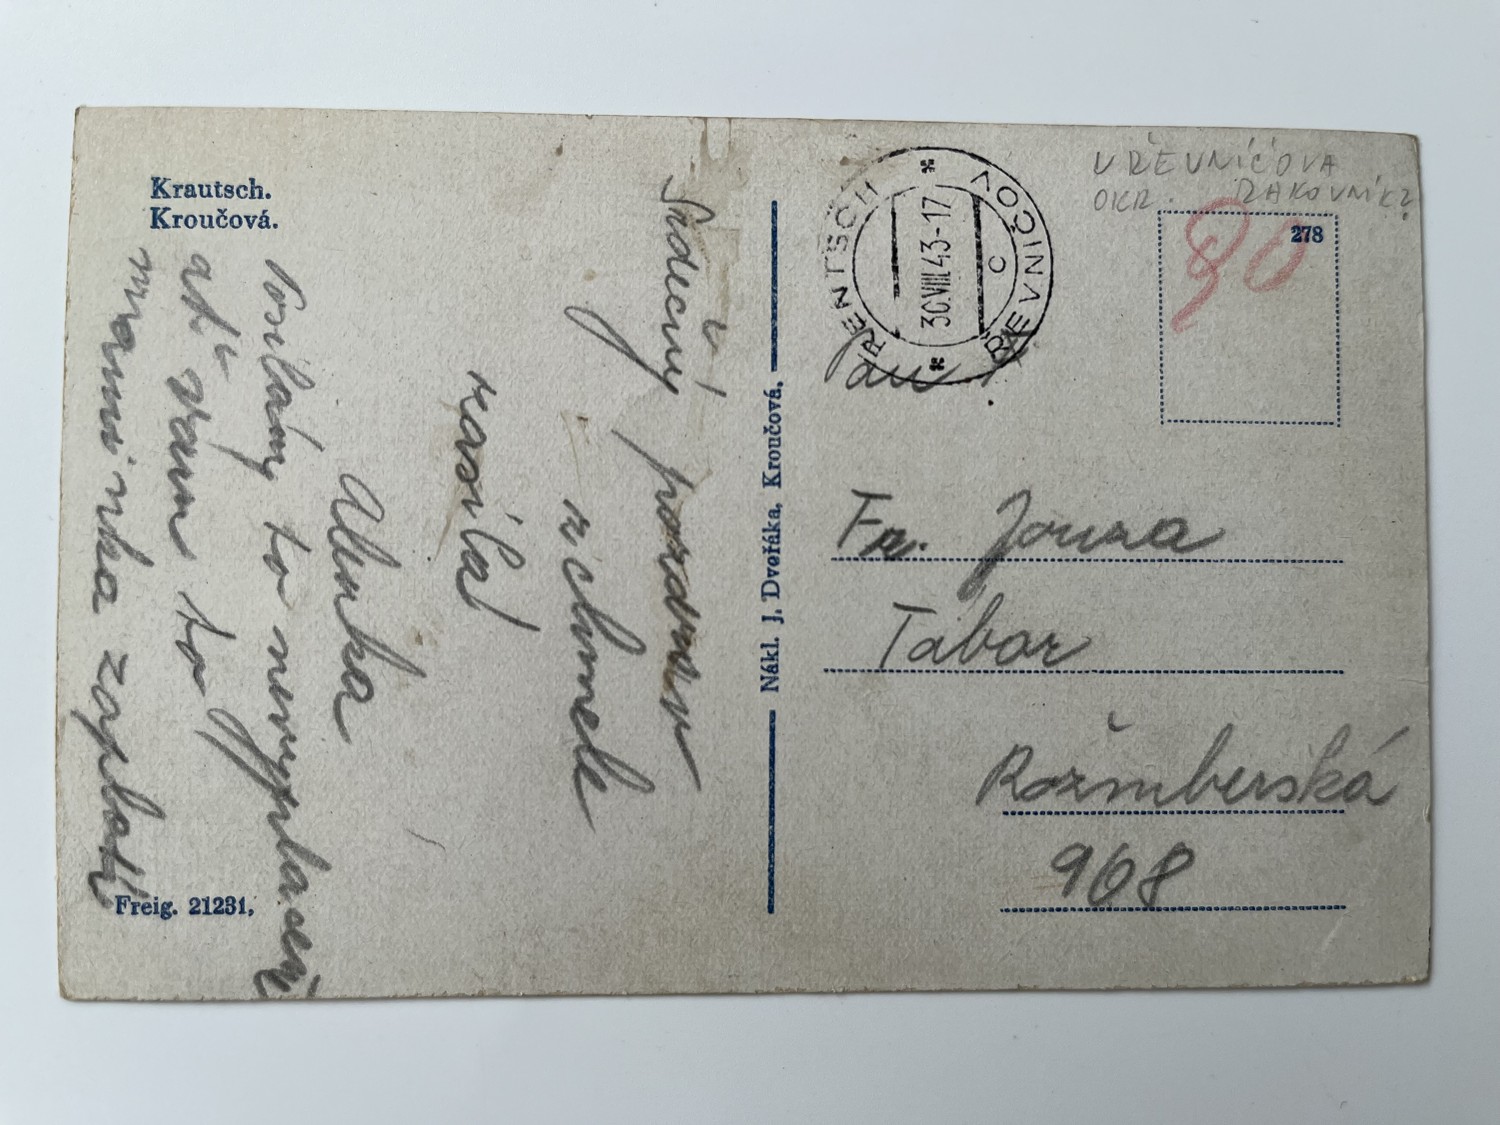 Krautsch.
Kroučová.
Srdečný pozdrav
z chmele
zasílá
Alenka
Posílám to nevyplacený
ať vám to
maminka zaplatí
Freig. 21231,
Nákl. J. Dvořáka, Kroučová.
RENTSCH ŘEVNIČOV
30.VIII.43-17
C
U ŘEVNIČOVA
OKR. RAKOVNÍK?
278
80
Pan
Fr. Jouza
Tábor
Rožmberská
968